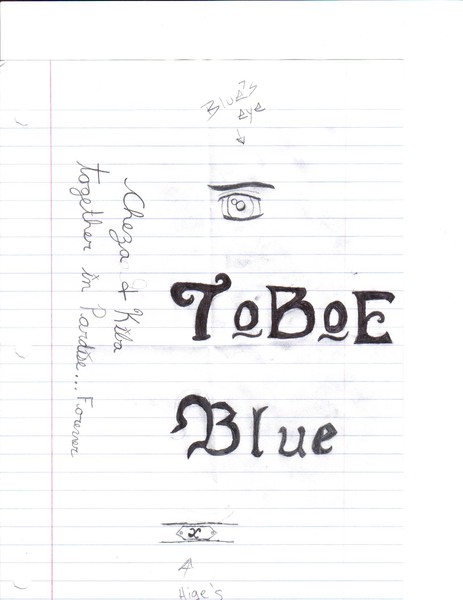 Blue's
eye
Cheza & Kiba
together in Pardise... Forever
ToBoE
Blue
x
Hige's